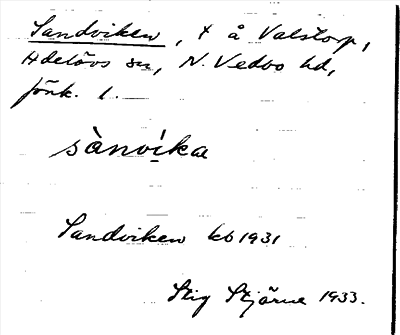 Sandviken, t å Valstorp,
Adelövs sn, N. Vedbo hd,
Jönk. l.
sànvíka
Sandviken kb 1931
Stig Stjärne 1933.